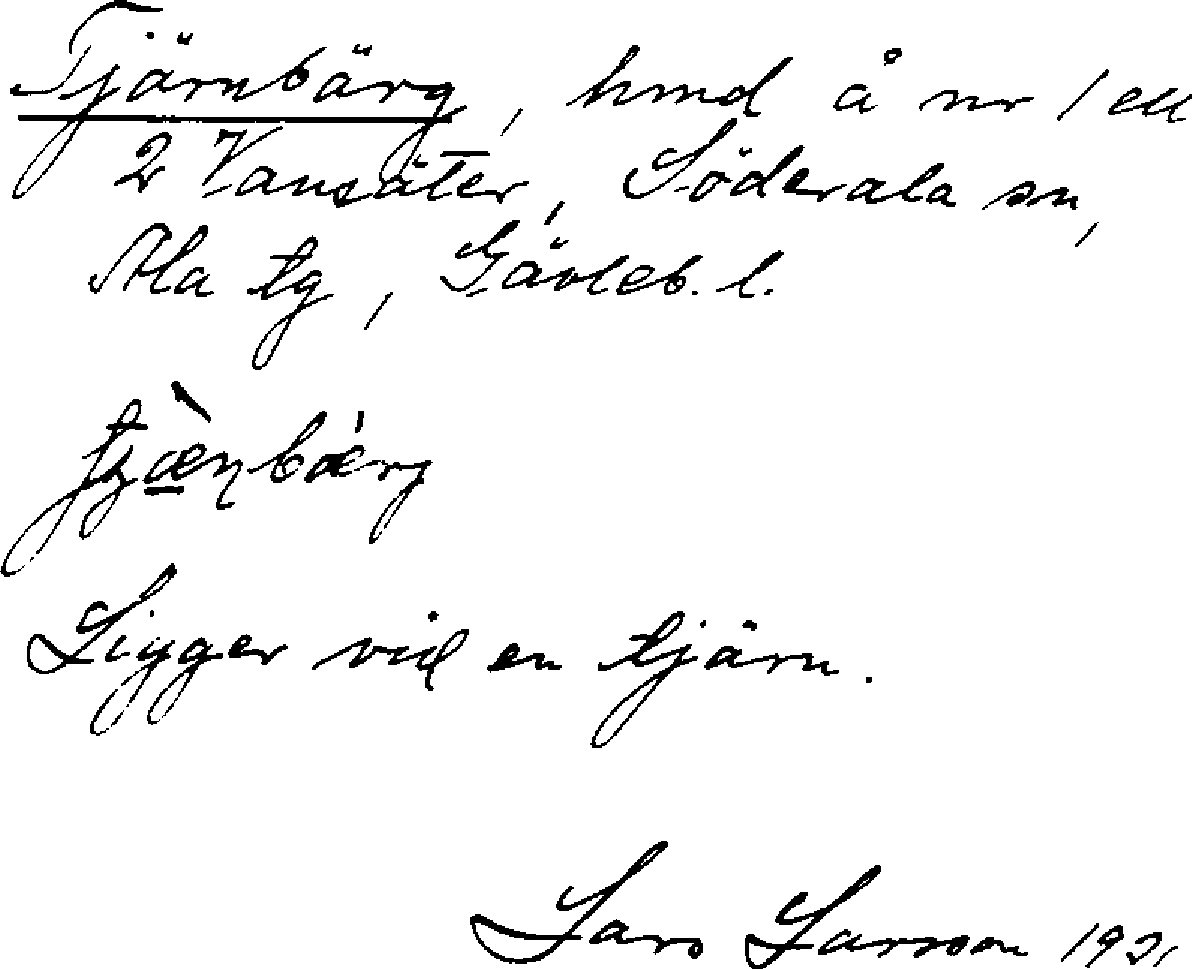 Tjärnbärg, hmd å nr 1 ell
2 Vansäter, Söderala sn,
Ala tg, Gävleb. l.
Ligger vid en tjärn.
Lars Larsson 1921